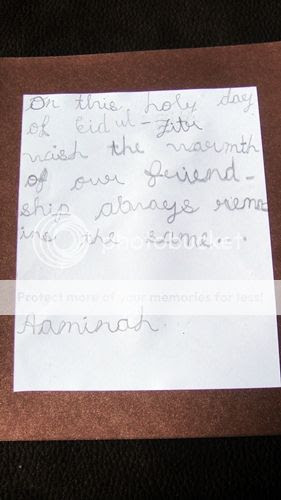 On this holy day
of Eid ul-Fitr
wish the warmth
of our friend-
ship always rema
ins the same...
photobucket
Protect more of your memories for less!
Aaminah...